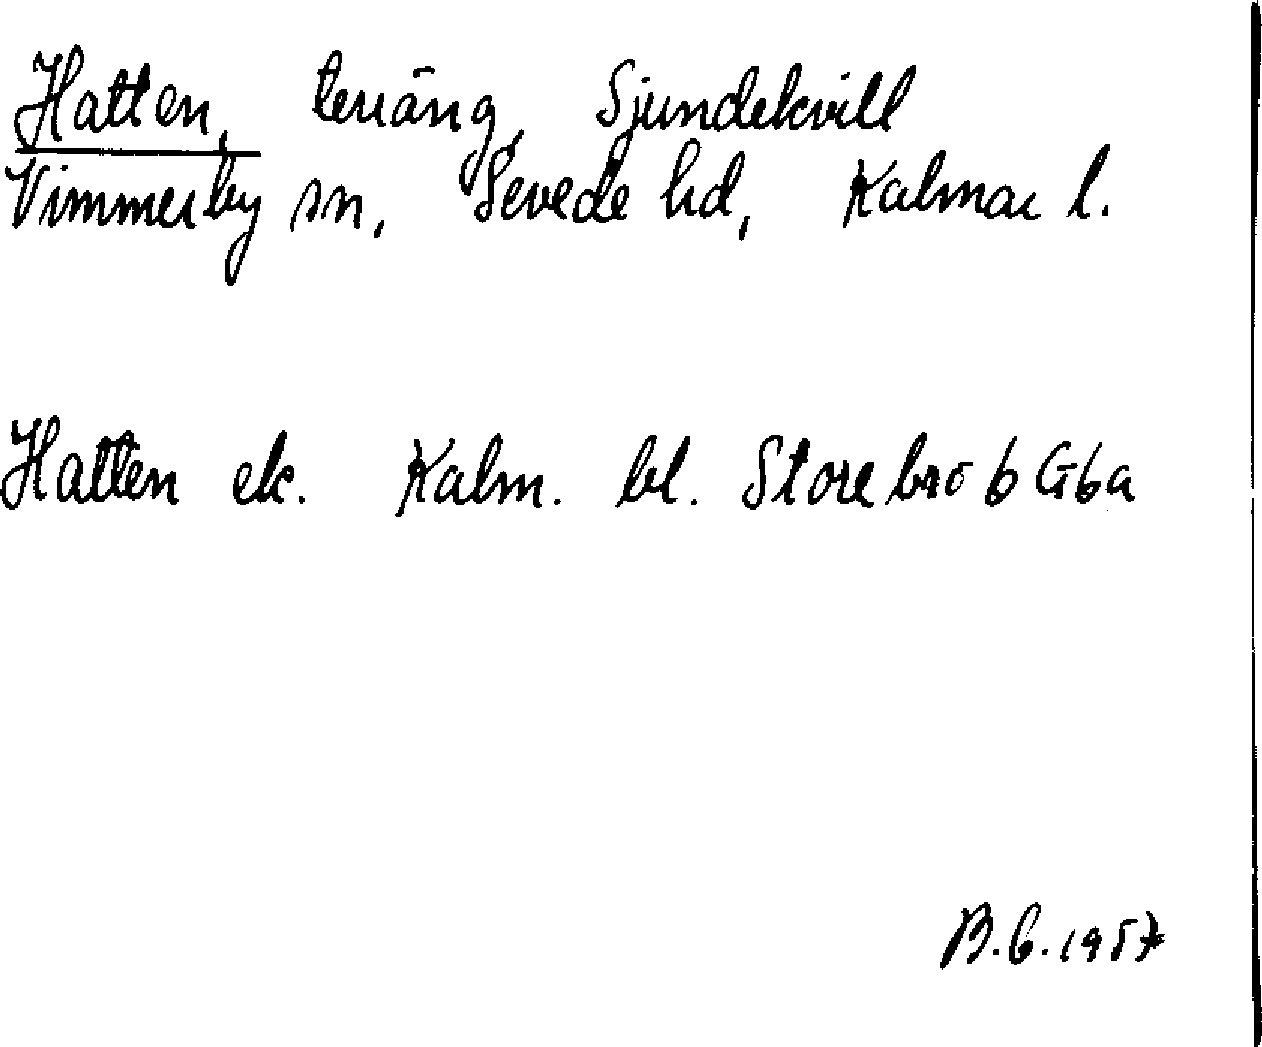 Hatten, terräng, Sjundekvill
Vimmerby sn, Sevede hd, Kalmar l.
Hatten ek. Kalm. bl. Storebro 6 G 6a
B.G. 1957